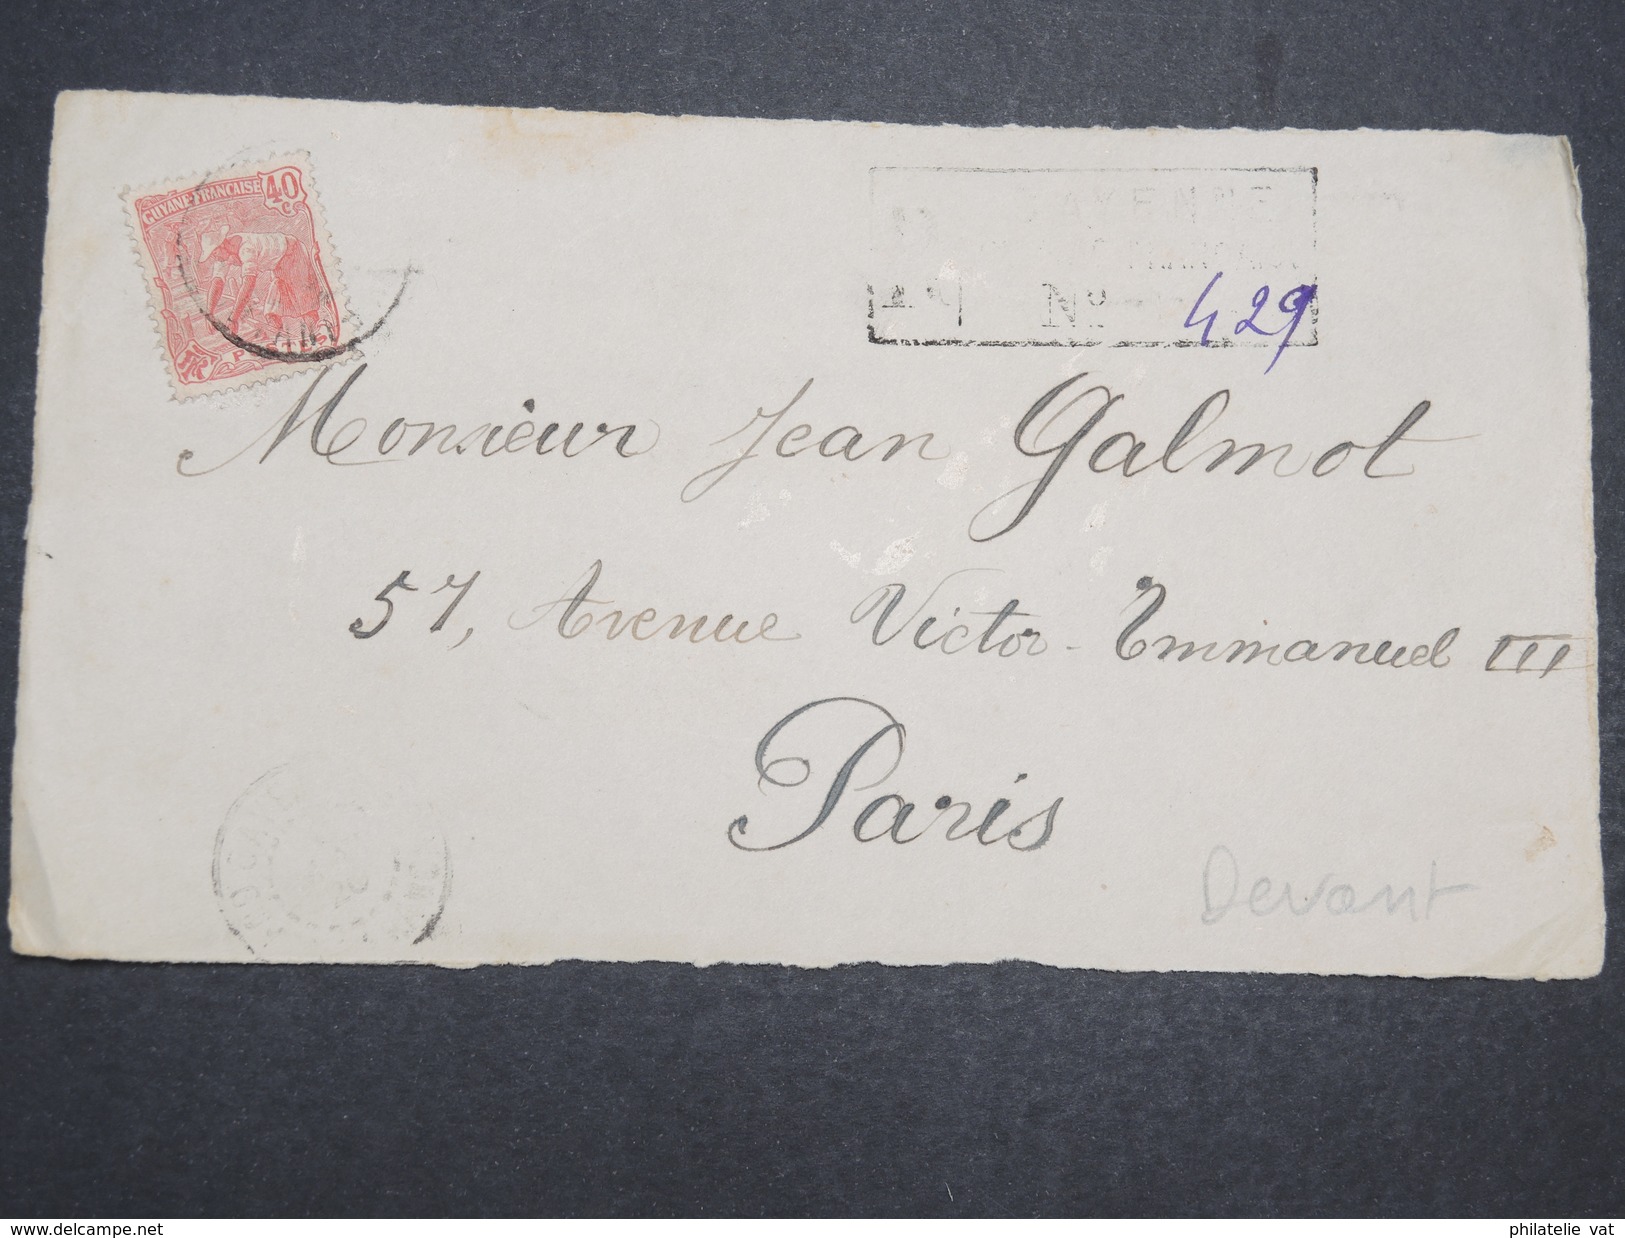 GUYANE FRANÇAISE
40 c.
POSTES
CAYENNE
R
No 429
Monsieur Jean Galmot
57, Avenue Victor-Emmanuel III
Paris
CAYENNE
Devant
www.delcampe.net
philatelie vat